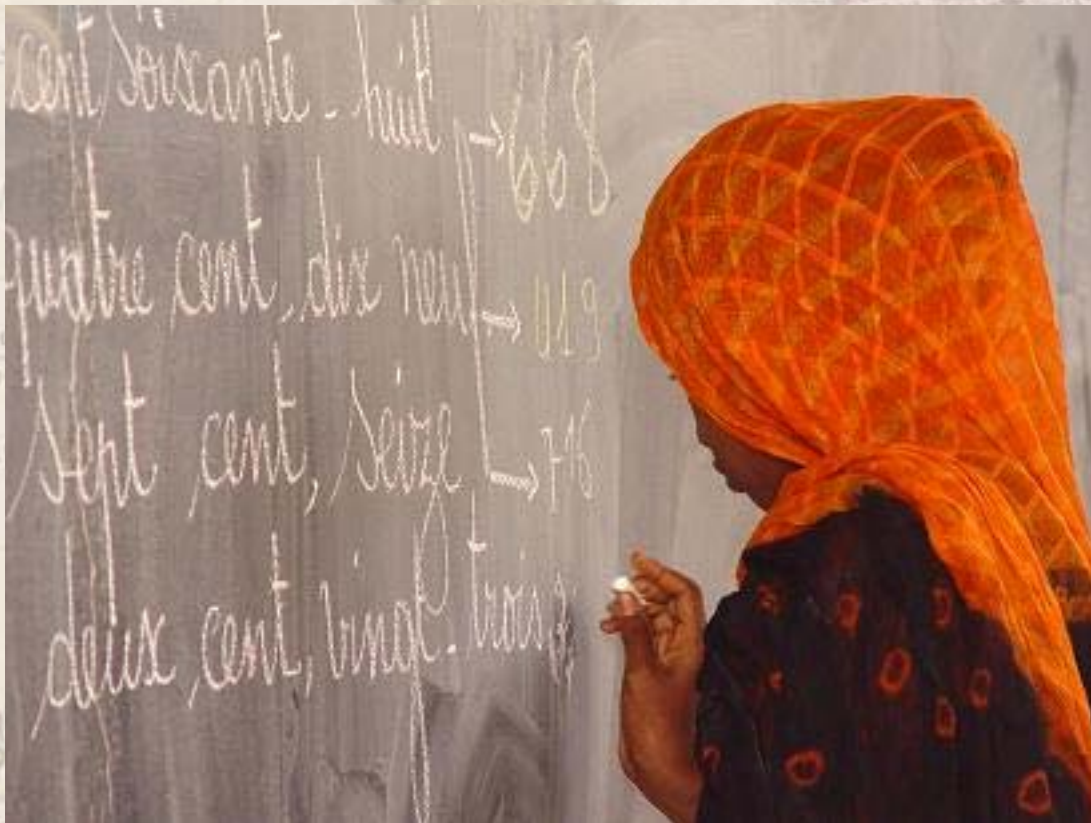 cent soixante-huit → 668
quatre cent dix neuf → 419
sept cent seize → 716
deux cent vingt-trois